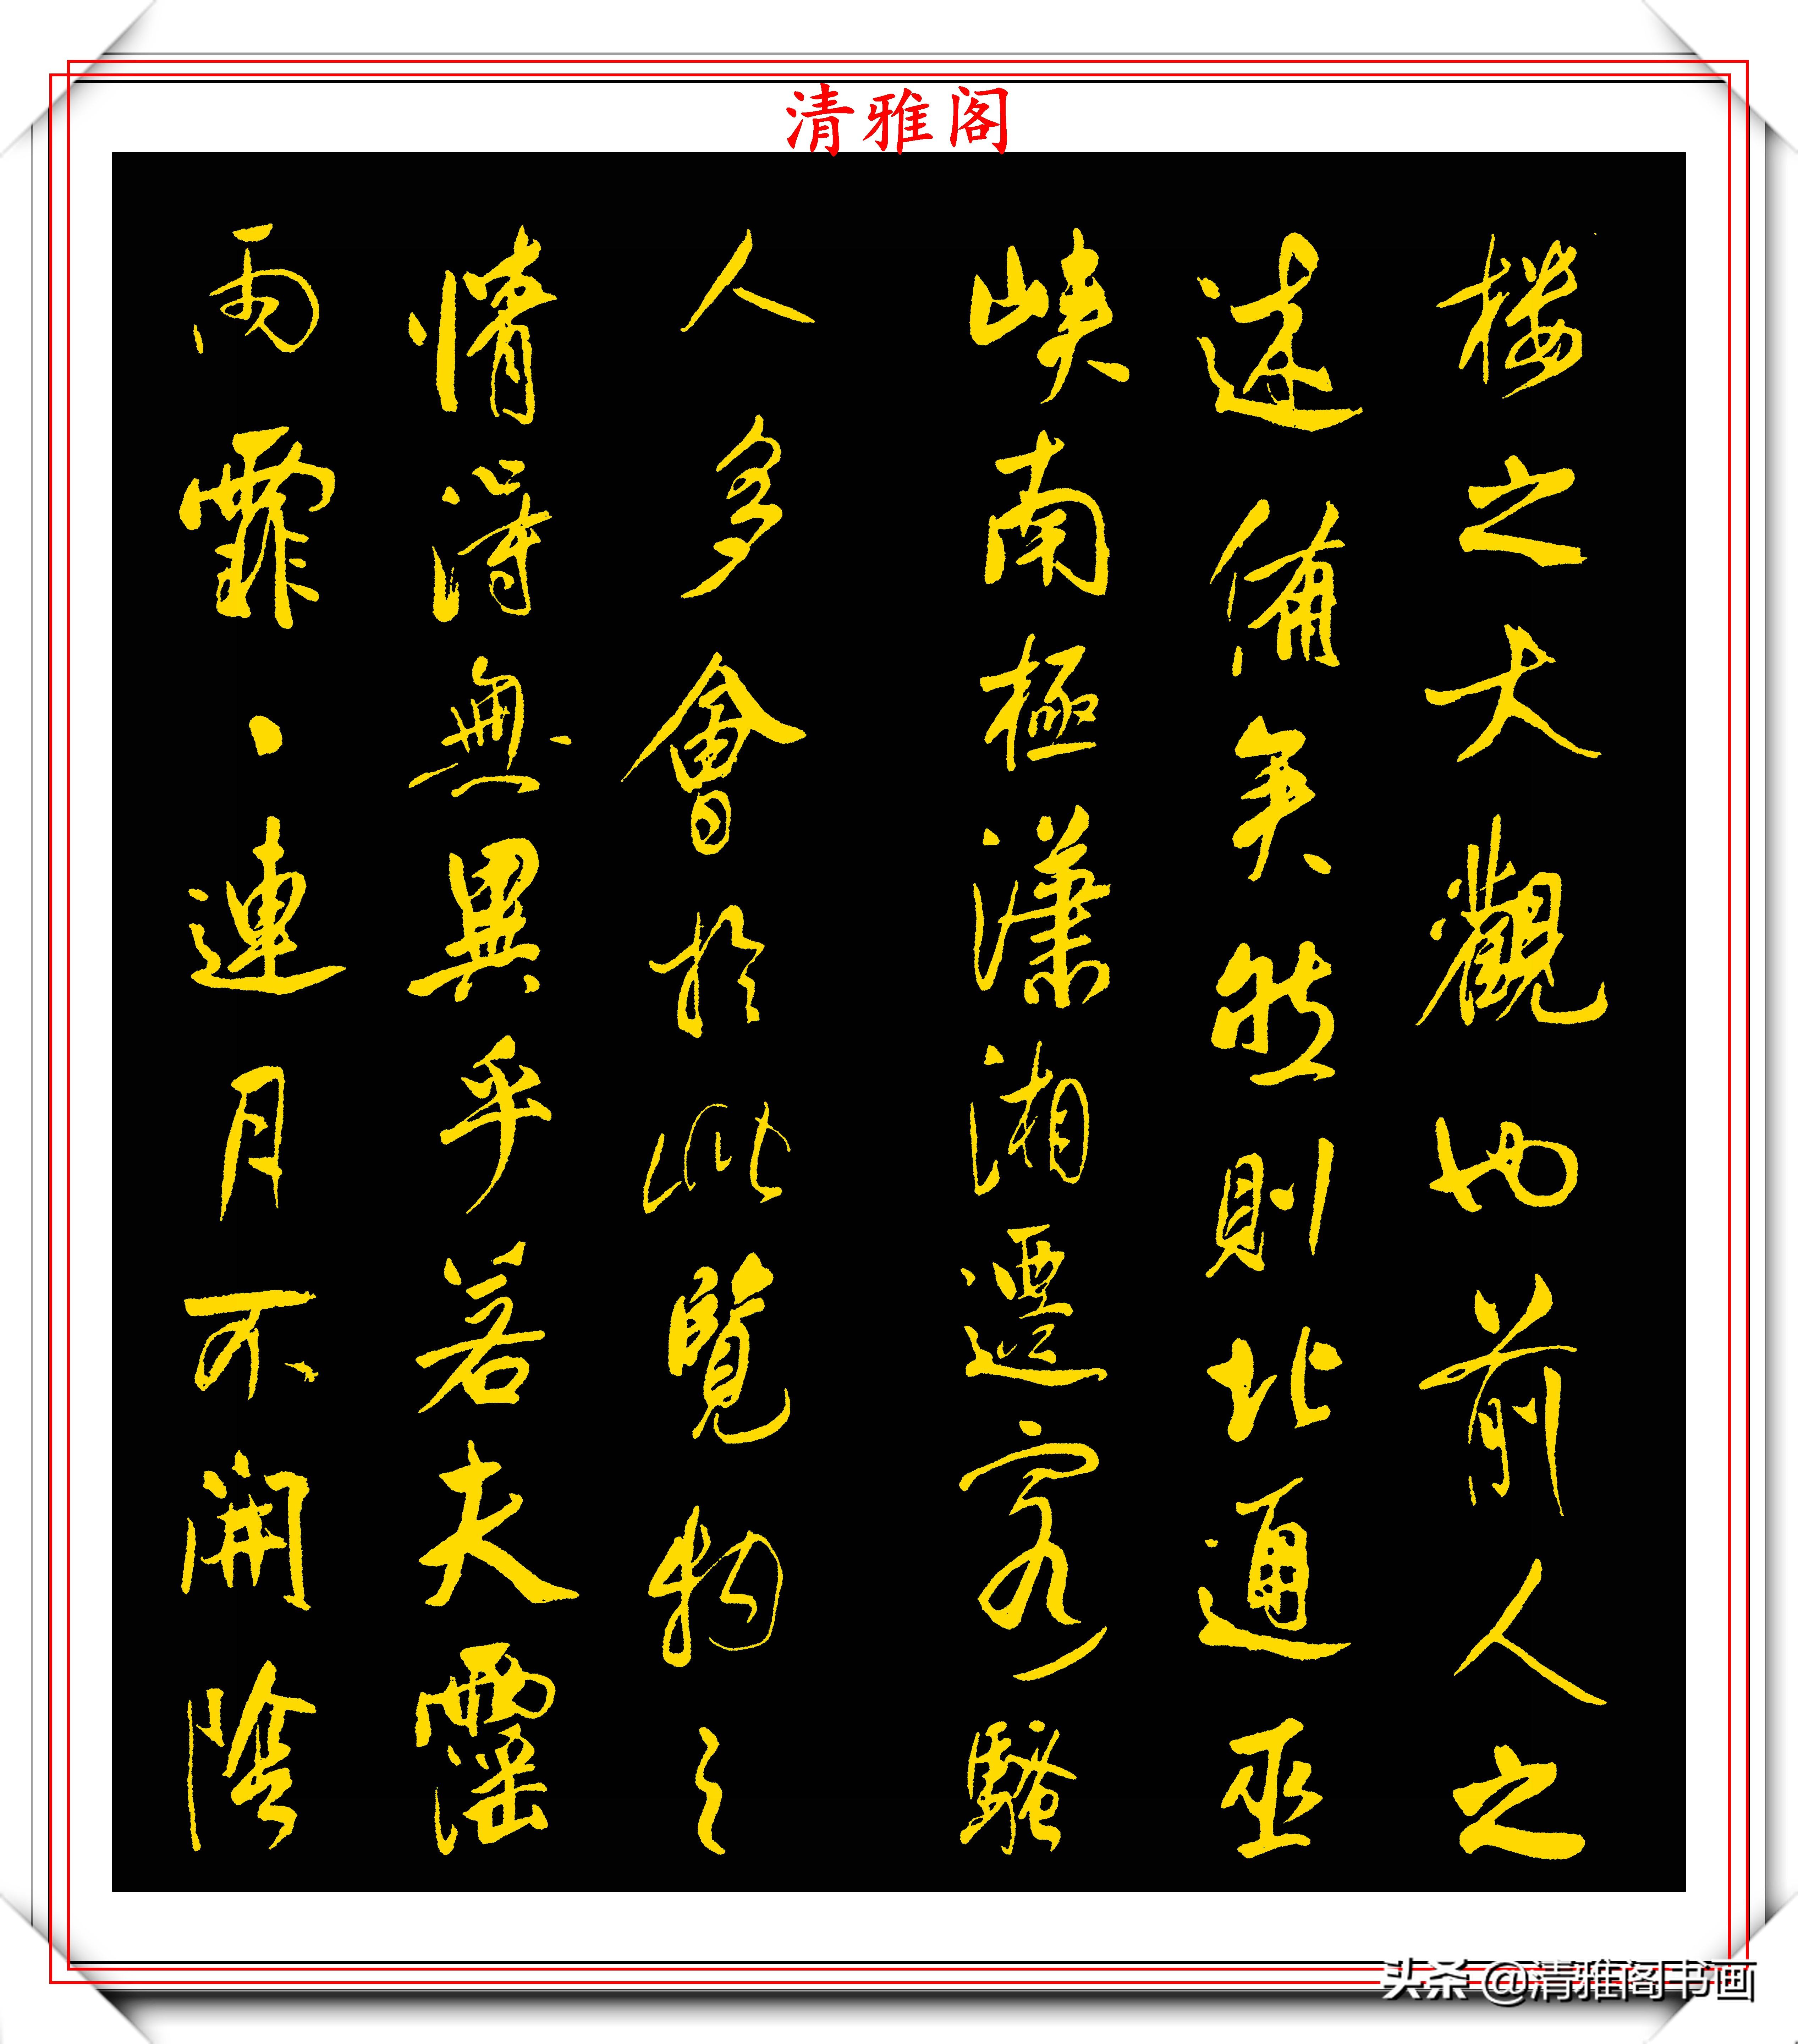 清雅阁
楼之大觀也前人之
述備矣然則北通巫
峡南極瀟湘遷客騷
人多會於此覽物之
情得無異乎若夫霪
雨霏、連月不開陰
头条 @清雅阁书画